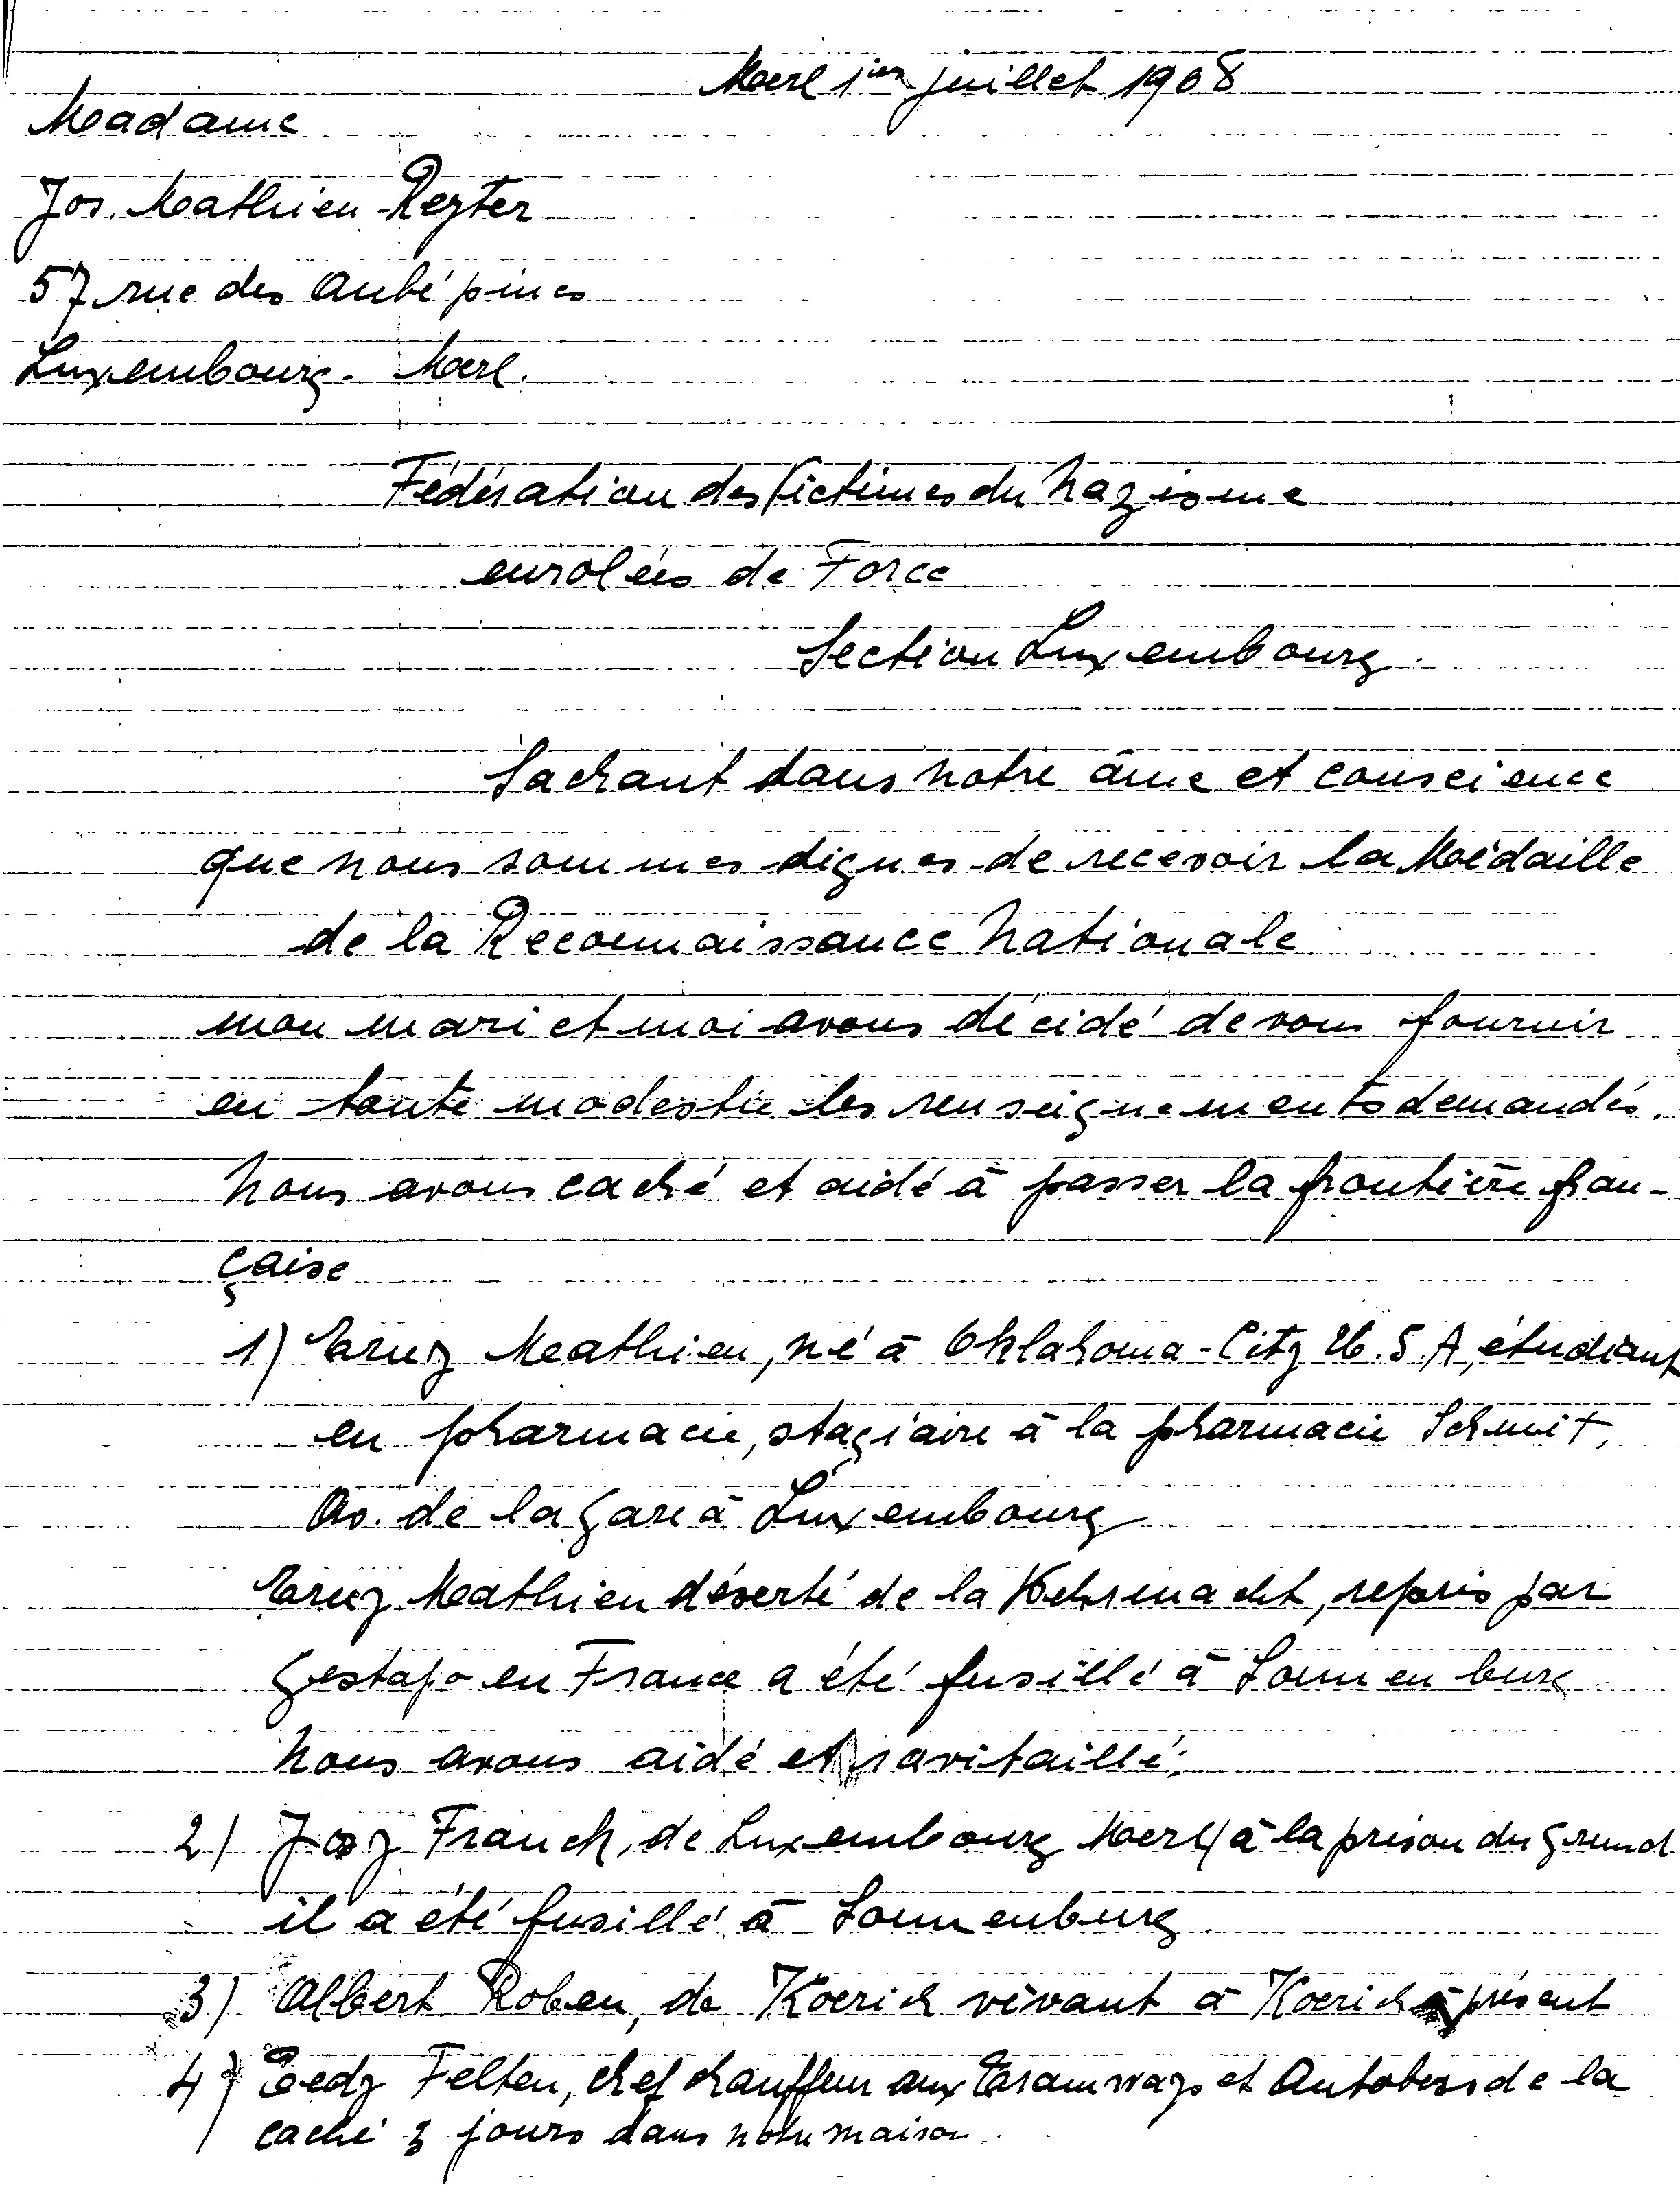 Merl 1ier juillet 1968
Madame
Jos. Mathieu-Reyter
57 rue des Aubépines
Luxembourg. Merl.
Fédération des Victimes du Nazisme
enrolées de Force
Section Luxembourg.
Sachant dans notre âme et conscience
que nous sommes dignes de recevoir la Médaille
de la Reconnaissance Nationale
mon mari et moi avons décidé de vous fournir
en toute modestie les renseignements demandés.
Nous avons caché et aidé à passer la frontière fran-
çaise
1) Mathieu, né à Oklahoma-City U.S.A, étudiant
en pharmacie, stagiaire à la pharmacie Schmit,
Av. de la gare à Luxembourg
Mathieu déserté de la Wehrmacht, repris par
gestapo en France a été fusillé à Sonnenburg
Nous avons aidé et ravitaillé:
2) Josy Franck, de Luxembourg Merl, à la prison du Grund
il a été fusillé à Sonnenburg.
3) Albert Roben, de Koerich vivant à Koerich à présent
4) Tedy Felten, chef chauffeur aux Tramways et Autobus de la
caché 3 jours dans notre maison.